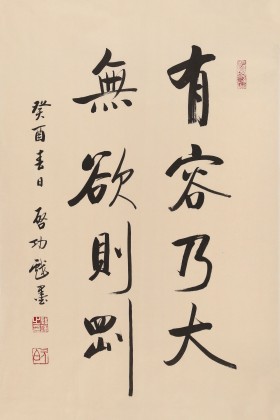 有容乃大
無欲則剛
癸酉春日 啓功戲墨